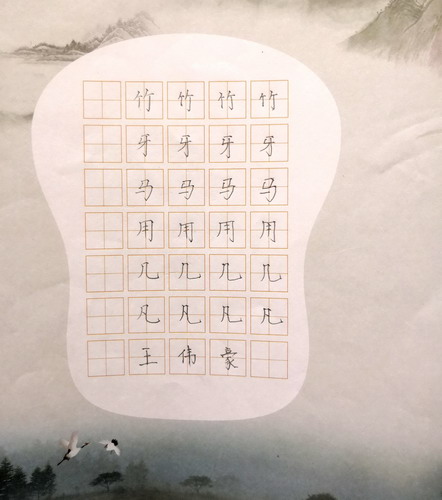 竹竹竹竹
牙牙牙牙
马马马马
用用用用
几几几几
凡凡凡凡
王伟豪